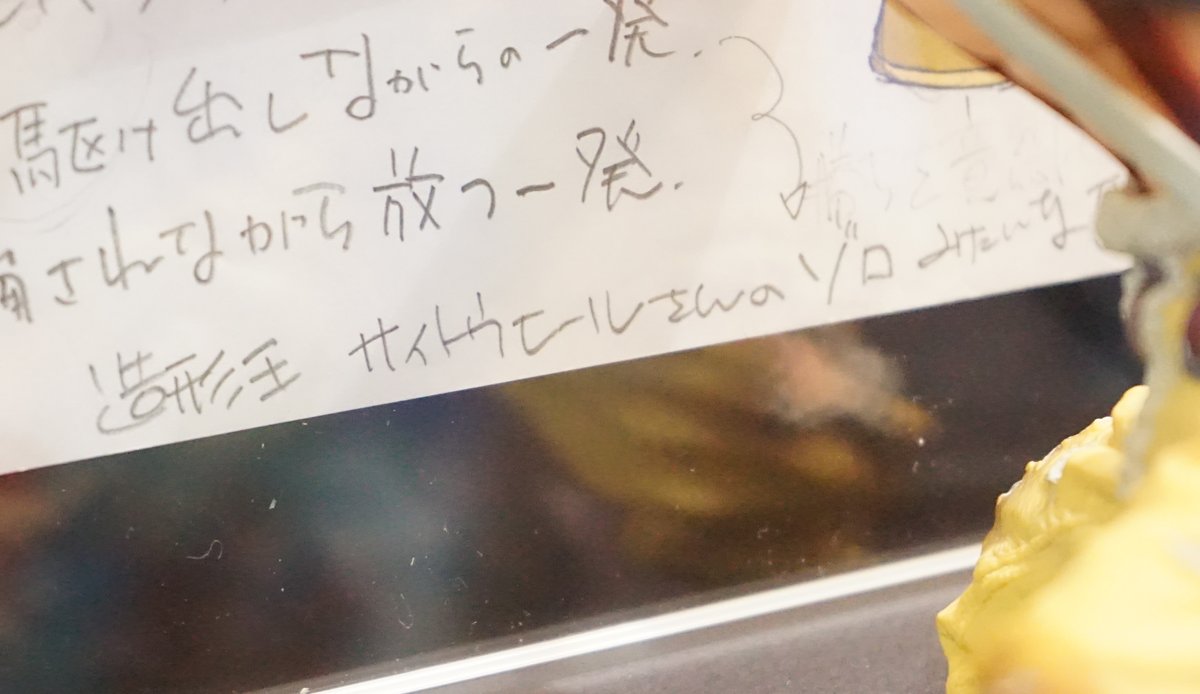 駆け出しながらの一発.
されながら放つ一発.
勝ち
造形王 サイトウヒールさんのゾロみたいな